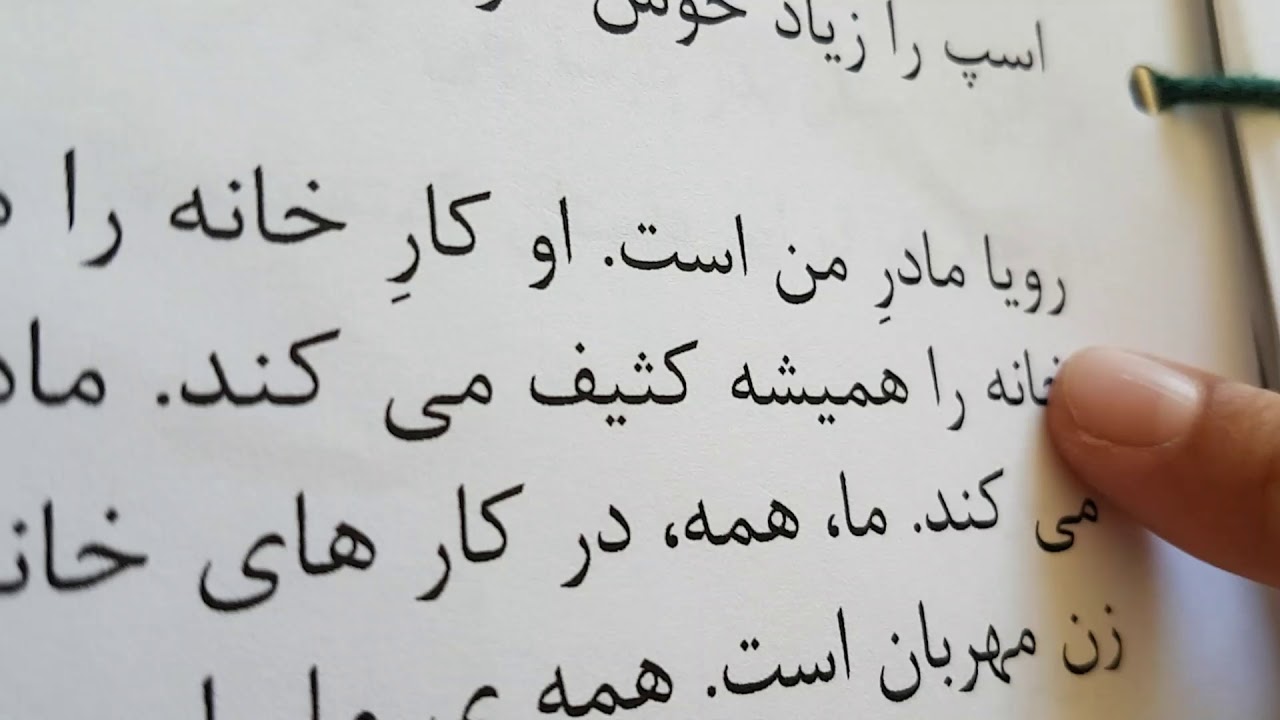 اسپ را زیاد خوش
رویا مادرِ من است. او کارِ خانه را
خانه را همیشه کثیف می کند.
می کند. ما، همه، در کار های
زن مهربان است. همه ی